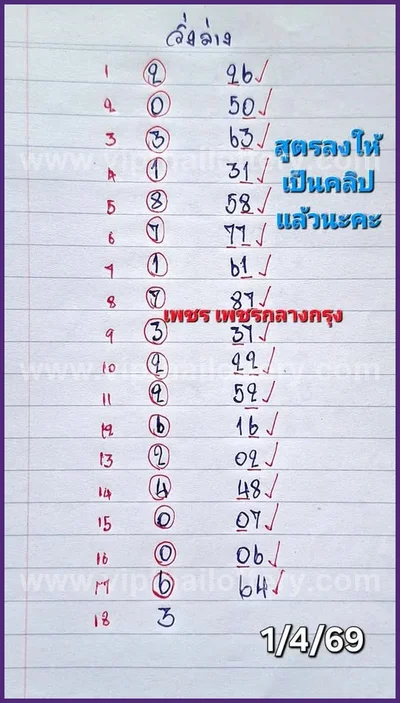 วิ่งล่าง
1 2 26 ✓
2 0 50 ✓
3 3 63 ✓
สูตรลงให้
4 1 31 ✓
เป็นคลิป
5 8 58 ✓
แล้วนะคะ
6 7 77 ✓
7 1 61 ✓
8 7 87 ✓
เพชร เพชรกลางกรุง
9 3 37 ✓
10 2 22 ✓
11 2 52 ✓
12 6 16 ✓
13 2 02 ✓
14 4 48 ✓
15 0 07 ✓
16 0 06 ✓
17 6 64 ✓
18 3
1/4/69